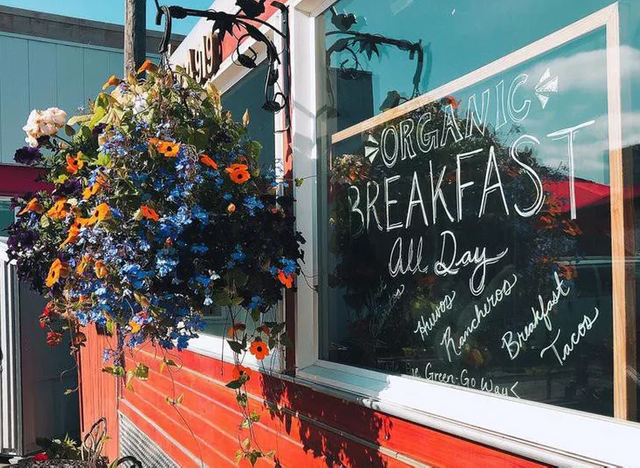 ORGANIC
BREAKFAST
All Day
Huvos
Rancheros
Breakfast
Tacos
Green-Go Way